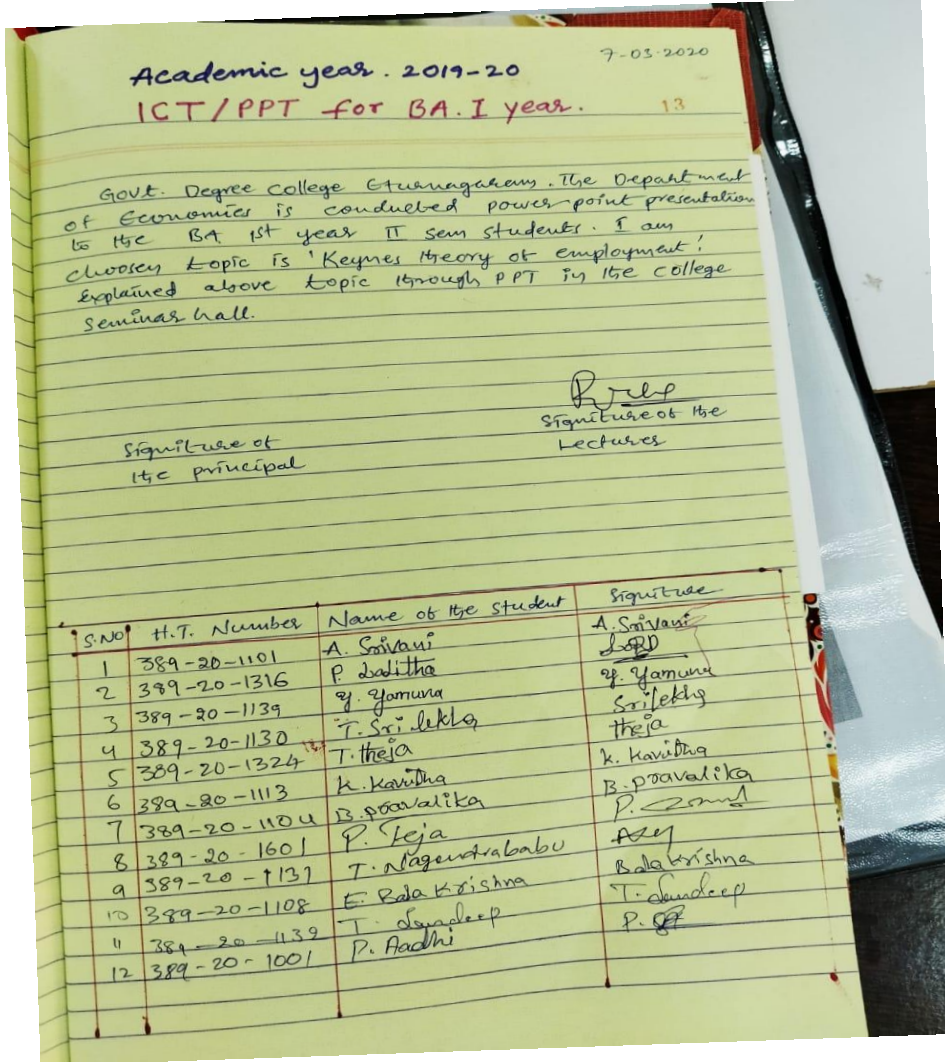 7-03-2020
Academic year. 2019-20
ICT/PPT for BA. I year.
13
Govt. Degree College Eturnagaram. The Department
of Economics is conducted power point presentation
to the BA 1st year II sem students. I am
choosen topic is 'Keynes theory of employment'.
Explained above topic through PPT in the college
seminar hall.
Signiture of the
Lectures
Signiture of
the principal
S.NO H.T. Number Name of the student Signiture
1 389-20-1101 A. Srivani A. Srivani
2 389-20-1316 P. Lalitha
3 389-20-1139 Y. Yamuna Y. Yamuna
4 389-20-1130 T. Srilekha Srilekha
5 389-20-1324 T. theja theja
6 389-20-1113 K. Kavitha K. Kavitha
7 389-20-1104 B. pravalika B. pravalika
8 389-20-1601 P. Teja P.
9 389-20-1137 T. Nagendrababu
10 389-20-1108 E. Bala Krishna Balakrishna
11 389-20-1139 T. Sandeep T. Sandeep
12 389-20-1001 P. Aadhi P.